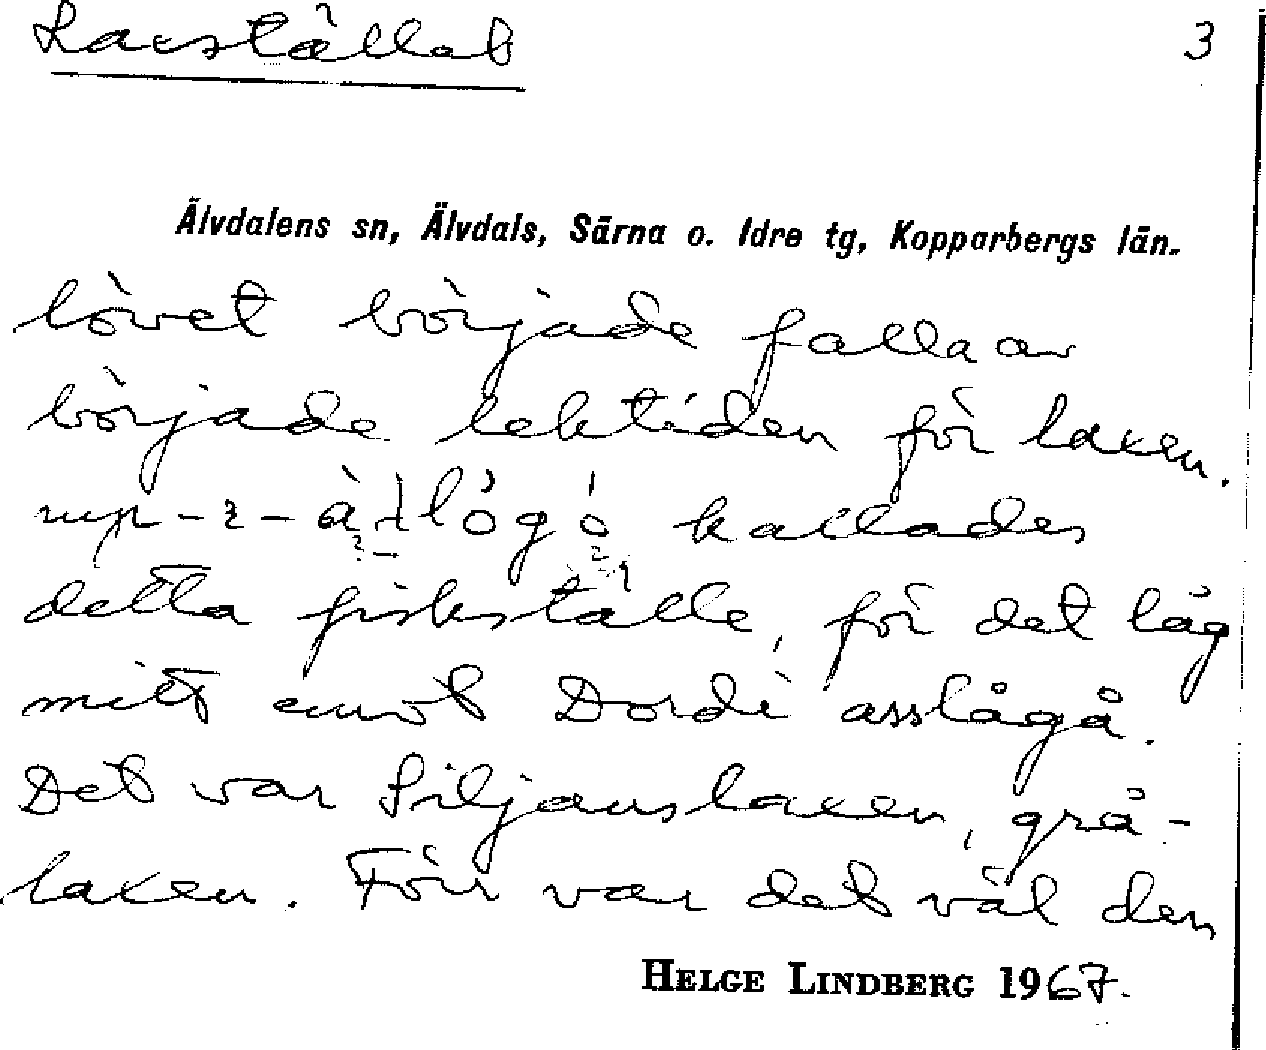 Laxstället
3
Älvdalens sn, Älvdals, Särna o. Idre tg, Kopparbergs län.
lövet började falla av
började lektiden för laxen.
kallades
detta fiskställe, för det låg
mitt emot Dordi asslågå.
Det var Siljanslaxen, grå-
laxen. Förr var det väl den
HELGE LINDBERG 1967.